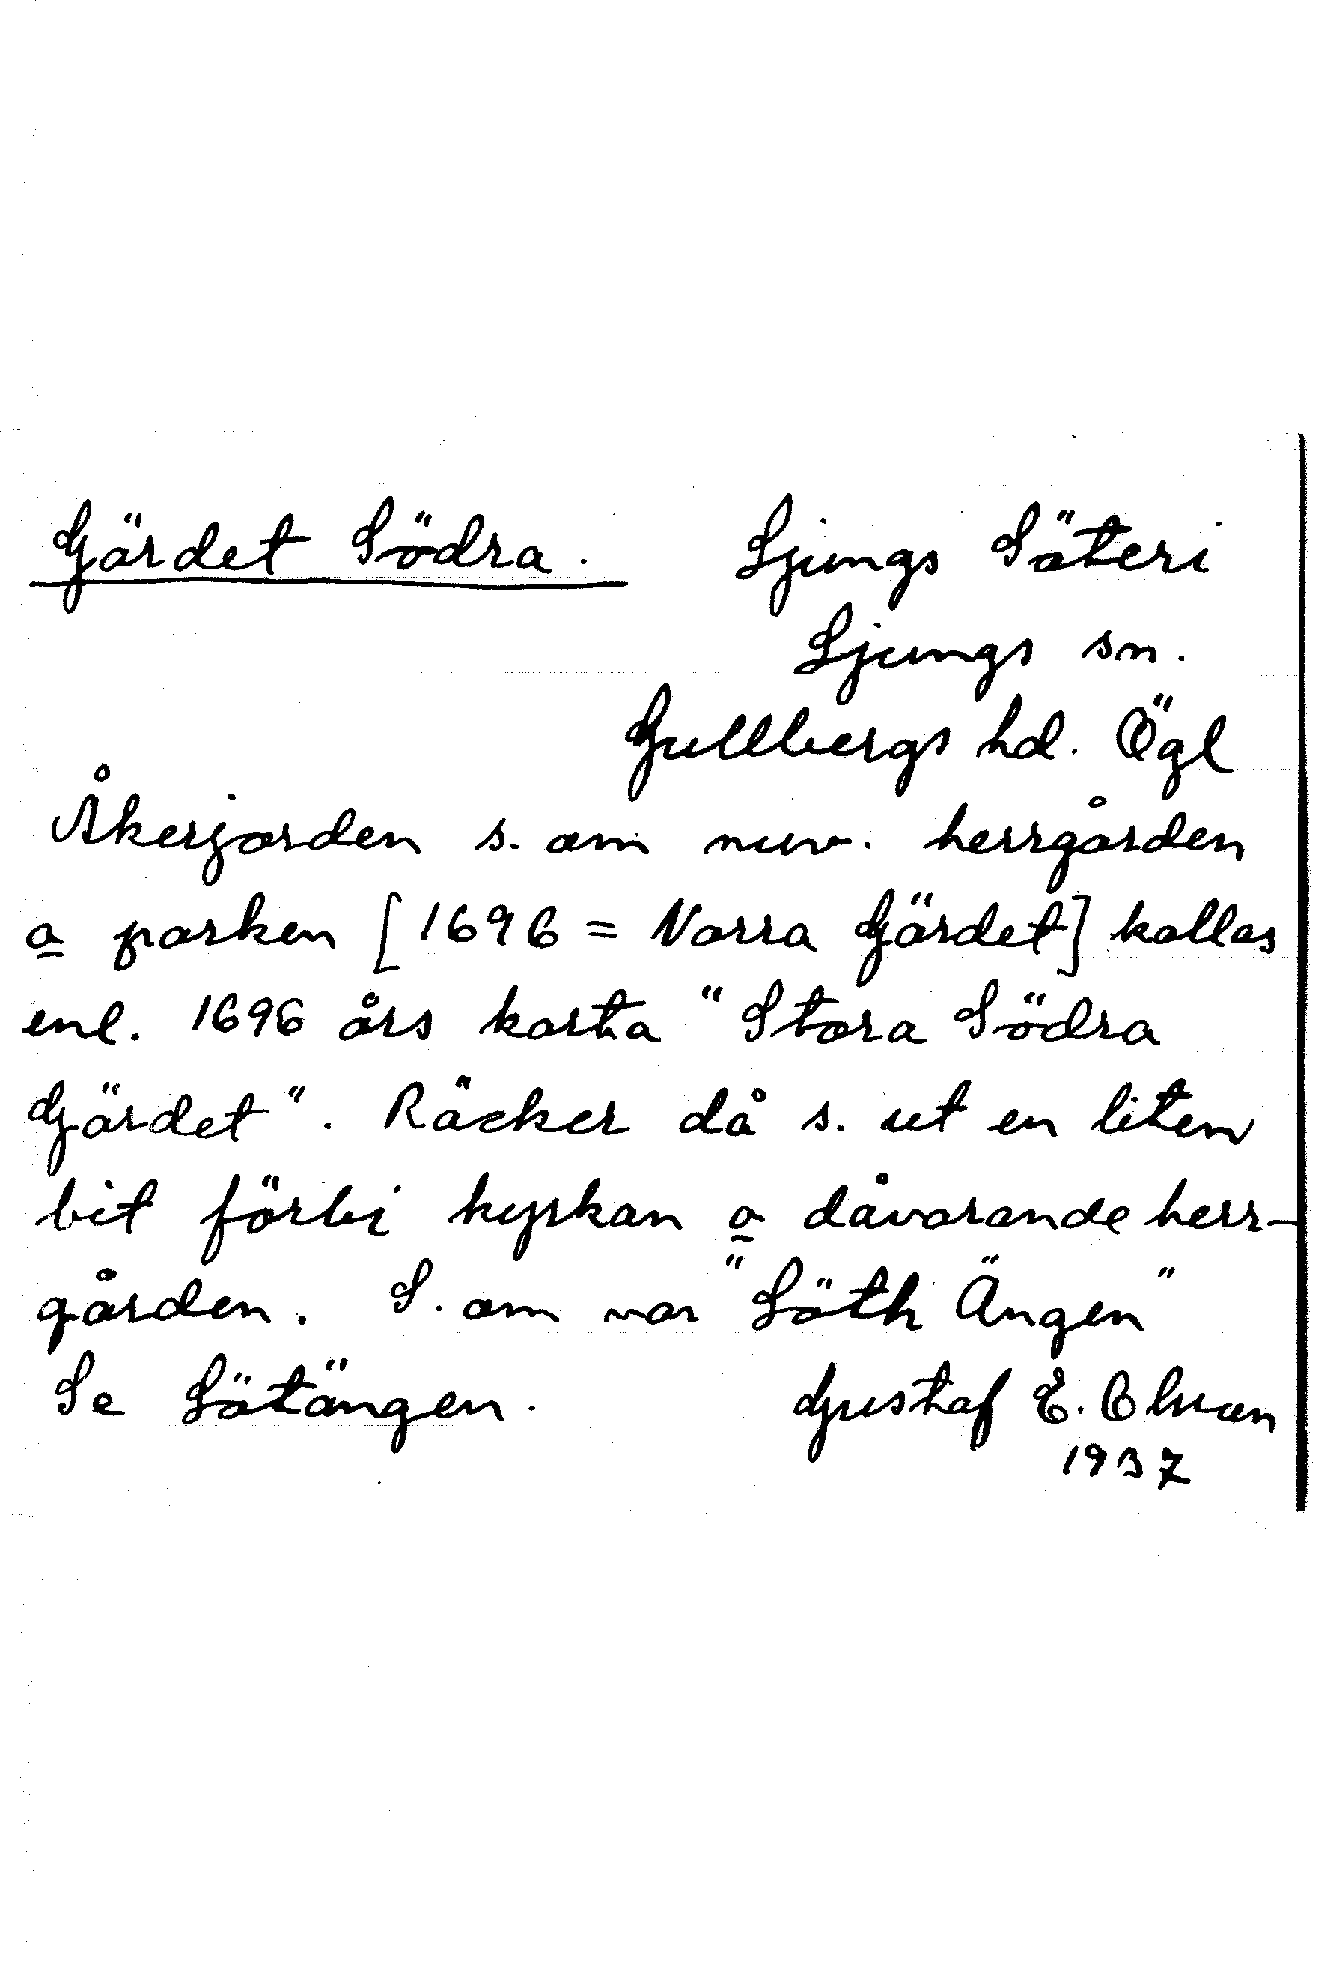 Gärdet Södra. Ljungs Säteri
Ljungs sn.
Gullbergs hd. Ögl
Åkerjorden s. om nuv. herrgården
o parken [1696 = Norra Gärdet] kallas
enl. 1696 års karta "Stora Södra
Gärdet". Räcker då s. ut en liten
bit förbi kyrkan o dåvarande herr-
gården. S. om var "Löth Ängen"
Se Lötängen. Gustaf E.
1937